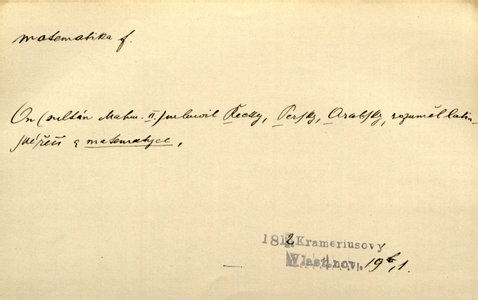 matematika f.
On (sultán Mahm. II) mluwil Řecky, Persky, Arabsky, rozuměl latin-
ské řeči a matematyce,
1812 Krameriusovy
Vlast. nov. 196,1.